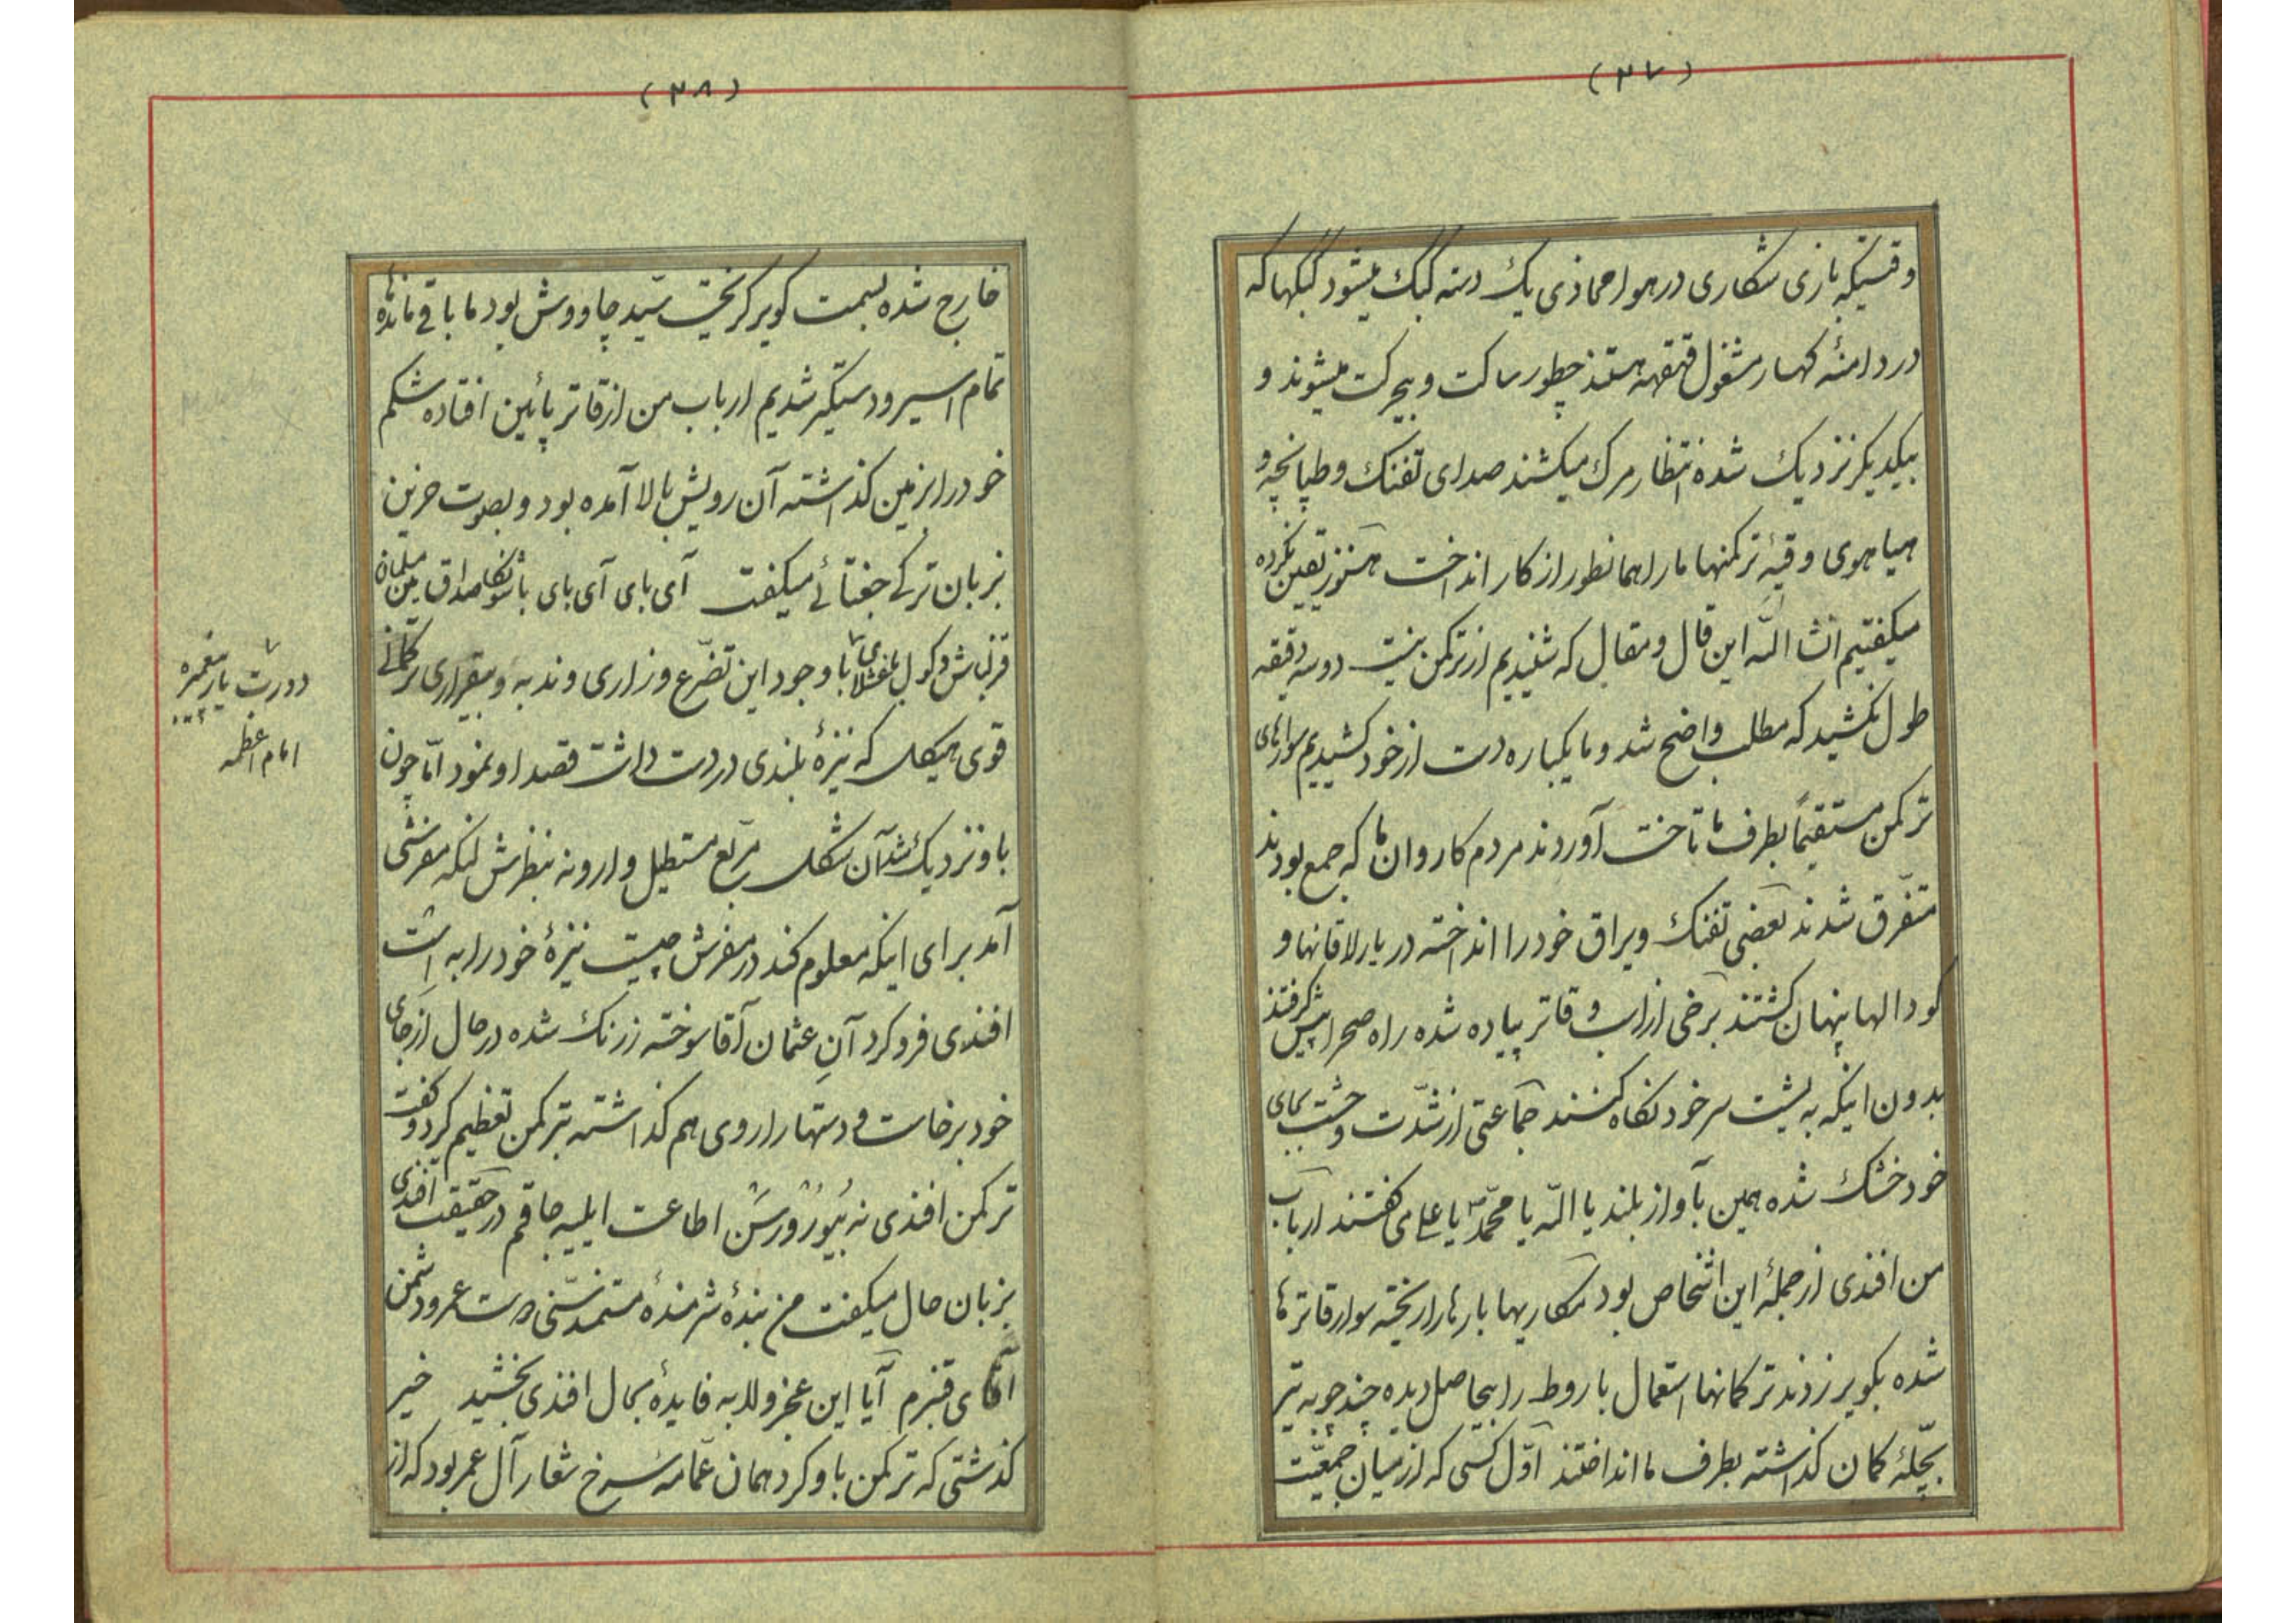 (۲۷)
وقتیکه بازی شکاری در هوا محاذی یک دسته کبک میشود کبکها که
در دامنهٔ کهسار مشغول قهقهه هستند چطور ساکت و بیحرکت میشوند و
بیکدیکر نزدیک شده انتظار مرک میکشند صدای تفنک و طپانچه و
هیاهوی وقیهٔ ترکمنها ما را همانطور از کار انداخت هنوز تعین نکرده
میکفتیم انشاالله این قال و مقال که شنیدیم از ترکمن نیست دو سه دقیقه
طول نکشید که مطلب واضح شد و ما یکباره دست از خود کشیدیم سوارهای
ترکمن مستقیماً بطرف ما تاخت آوردند مردم کاروان ما که جمع بودند
متفرّق شدند بعضی تفنک و یراق خود را انداخته در یارلاقانها و
کودالها پنهان کشتند برخی از اسب و قاتر پیاده شده راه صحرا پیش کرفتند
بدون اینکه به پشت سر خود نکاه کنند جماعتی از شدّت وحشت بجای
خود خشک شده همین بآواز بلند یا الله یا محمّد یا علی می کفتند ارباب
من افندی از جملهٔ این اشخاص بود مکاریها بارها را ریخته سوار قاترها
شده بکویر زدند ترکمانها استعمال باروط را بیحاصل دیده چند چوبه تیر
بچلّهٔ کمان کذاشته بطرف ما انداختند اوّل کسی که از میان جمعیّت
(۲۸)
خارج شده بسمت کویر کریخت سیّد چاووش بود ما باقی مانده
تمام اسیر و دستکیر شدیم ارباب من از قاتر پائین افتاده شکم
خود را بزمین کذاشته آن رویش بالا آمده بود و بصوت حزین
بزبان ترکی جغتائی میکفت آی بای آی بای باشونکا صداق من مسلمان
قزلباش دکول با وجود این تضرّع و زاری و ندبه و بیقراری ترکمانی
قوی هیکل که نیزهٔ بلندی در دست داشت قصد او نمود امّا چون
باو نزدیک شد آن شکل مربّع مستطیل وارونه بنظرش لنکه مفرشی
آمد برای اینکه معلوم کند در مفرش چیست نیزهٔ خود را به است
افندی فرو کرد آنِ عثمان آقا سوخته زرنک شده در حال از جای
خود برخاست و دستها را روی هم کذاشته بترکمن تعظیم کرد و کفت
ترکمن افندی نه بُیورُورسَن اطاعت ایلیه جاقم در حقیقت افندی
بزبان حال میکفت من بندهٔ شرمندهٔ مستمد سنّی دوست عمر و دشمن
آقای قنبرم آیا این عجز و لابه فایدهٔ بحال افندی بخشید خیر
کذشتی که ترکمن باو کرد همان عمّامه سرخ شعار آل عمر بود که از
دورت یار
امام اعظمه